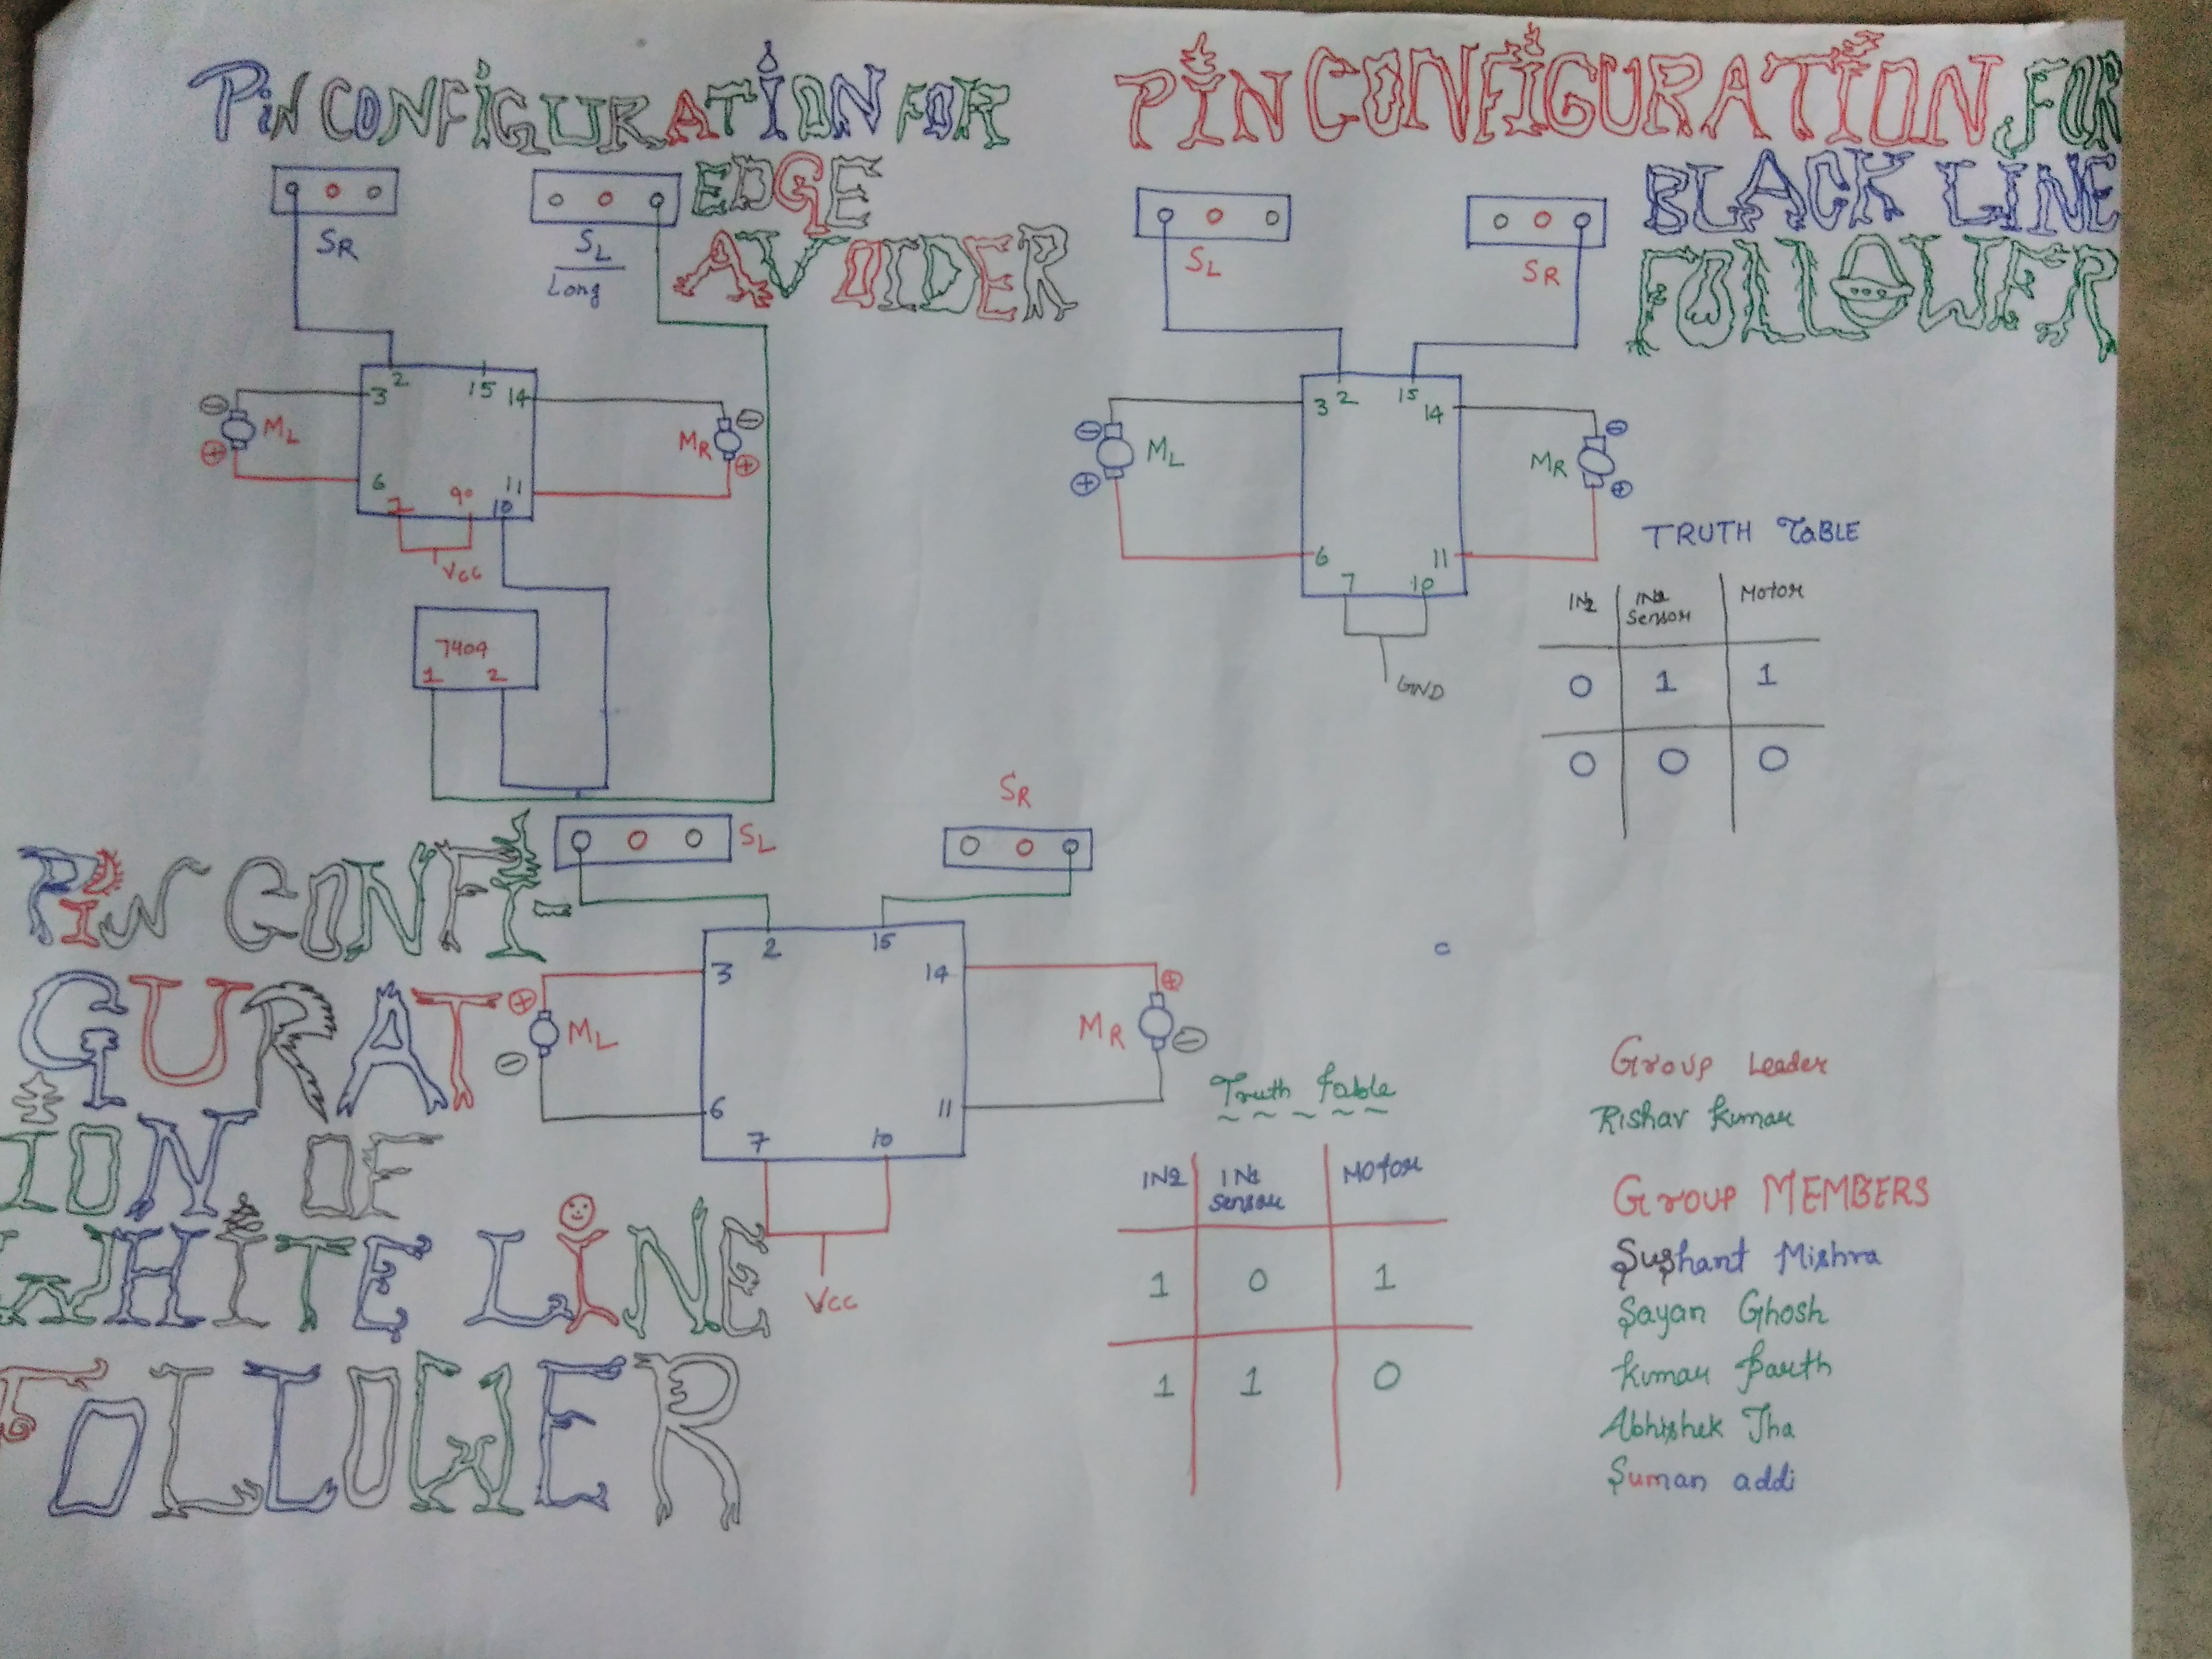 PiN CONFiGURATiON FOR
EDGE
AVOIDER
SR
SL
Long
2
15
3
14
ML
MR
6
11
7
10
VCC
7404
1 2
PiN CONFiGURATiON FOR
BLACK LINE
FOLLOWER
SL
SR
3 2
15
14
ML
MR
6
11
7
10
GND
TRUTH TaBLE
IN2 Sensor Motor
0 1 1
0 0 0
PIN CONFI-
GURAT
ION OF
WHiTE LiNE
FOLLOWER
SL
SR
2 15
3 14
ML
MR
6 11
7 10
VCC
Truth table
IN2 IN1 Sensor MOTOR
1 0 1
1 1 0
Group Leader
Rishav kumar
Group MEMBERS
Sushant Mishra
Sayan Ghosh
kumar Parth
Abhishek Jha
Suman addi